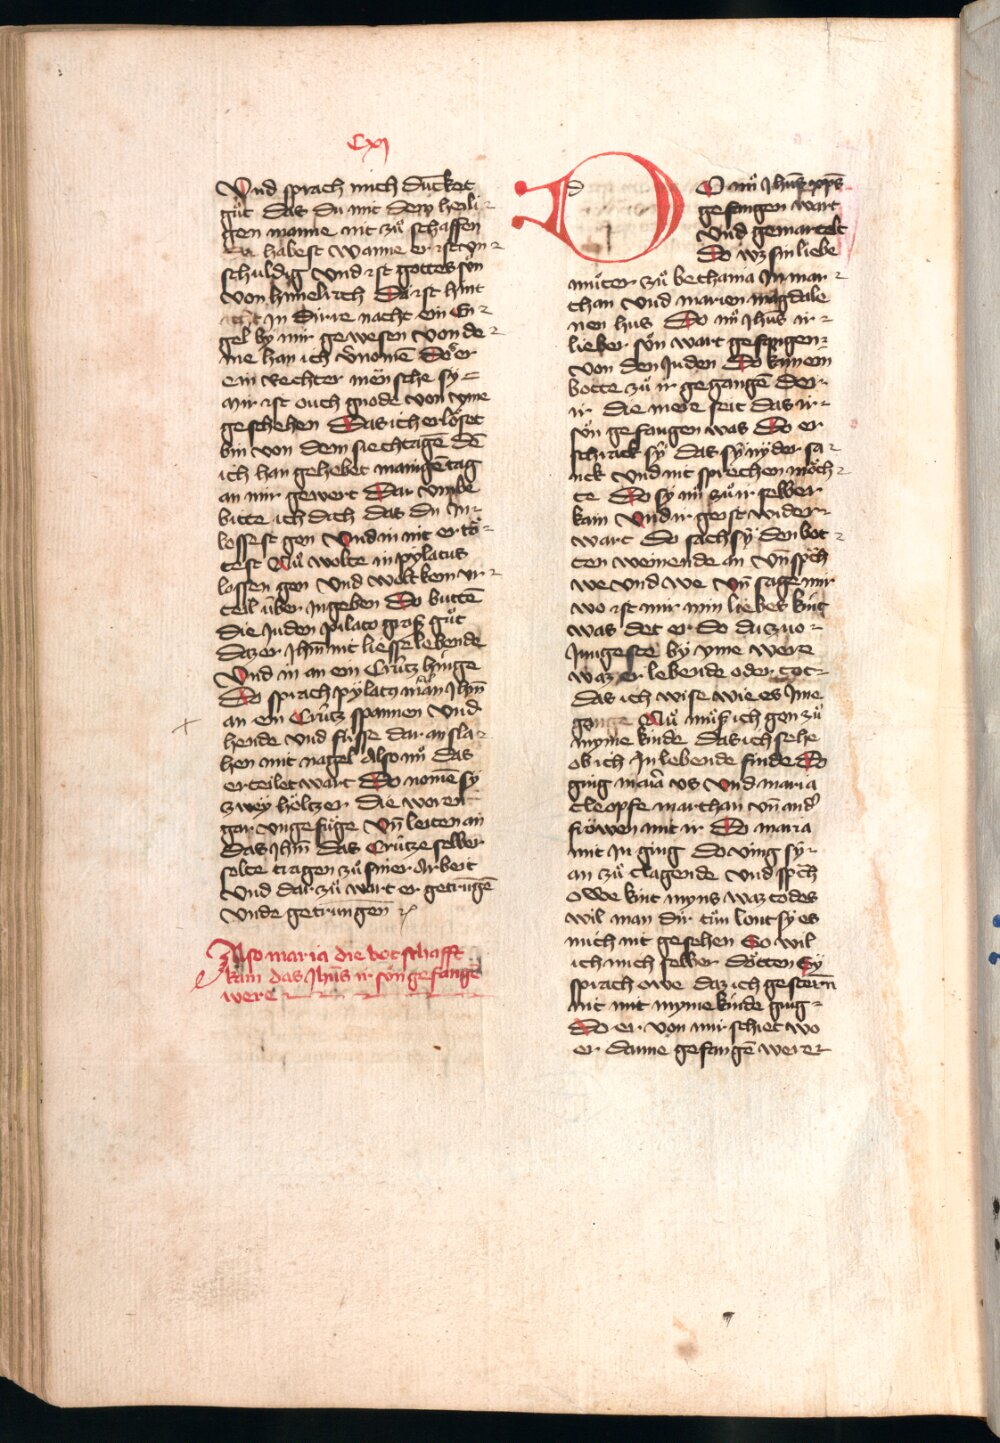 Cxj
Vnd sprach mich duncket
gůt das du mit dem heili-
gen manne nit zů schaffen
habest wanne er ist vn-
schuldig vnd ist gottes sůn
von himelrich Da ist hint
in dirre nacht ein en-
gel by mir gewesen von de-
me han ich v'nomē Dc er
ein rechter mēnsche sy
mir ist ouch gnode von yme
geschehen Das ich erlöset
bin von dem siechtagē dē
ich han gehebet manigē tag
an mir gewert Dar vmbe
bitte ich dich das du Jn
lossest gon Vnd in nit ertö-
test Nů wolte in pylatus
lossen gon vnd wolt kein vr-
teil über in geben Do buttē
die Juden pilato gros gůt
daz er Jhm̄ nit liesse lebende
Vnd in an ein Crütz hinge
Do sprach pylatus man Jhm̄
an ein Crütz spannen vnd
hende vnd füsse dar an sla-
hen mit nagel Also nů das
erteilet wart Do nomē sy
zwey höltzer die woren
gar vngefüge Vn̄ leiten an
das Jhm̄ das Crütze selber
solte tragen zů siner arbeit
vnd dar zů wart er getrungē
vnde getrungen
Also maria die botschafft
kam das Jhūs ir sůn gefangē
were
d
O nů Jhūs xp̄s
gefangen wart
vnd gemartelt
Do wz sin liebe
můter zů bethania in mar-
than vnd marien magdale
nen hus Do nů Jhūs ir
lieber sůn wart gefangen
von den Juden Do kam ein
botte zů ir gegangē der
ir die mere seit das ir
sůn gefangen was Do er
schrack sy Das sy nyder sa-
nck vnd nit sprechen möch-
te Do sy nů zů ir selber
kam Vnd ir geist wider
wart Do sach sy den bot-
ten weinende an vn̄ sp̄ch
we vnd we Vn̄ sage mir
wo ist mir min liebes kint
was det er do du zuo
Jungeste by yme were
waz er lebende oder tot
das ich wise wie es Jme
gange Nů můs ich gon zů
myme kinde das ich sehe
ob ich in lebende finde Do
ging maria vs vnd maria
cleopfe marthan vn̄ and'
fröwen mit ir Do maria
mit in ging do ving sy
an zů clagende vnd sp̄ch
owe kint myns waz todes
wil man dir tůn lont sy es
mich nit gesehen So wil
ich mich selber dötten Sy
sprach owe daz ich gestern
nit mit myme kinde ging
Do er von mir schiet wo
er danne gefangē were